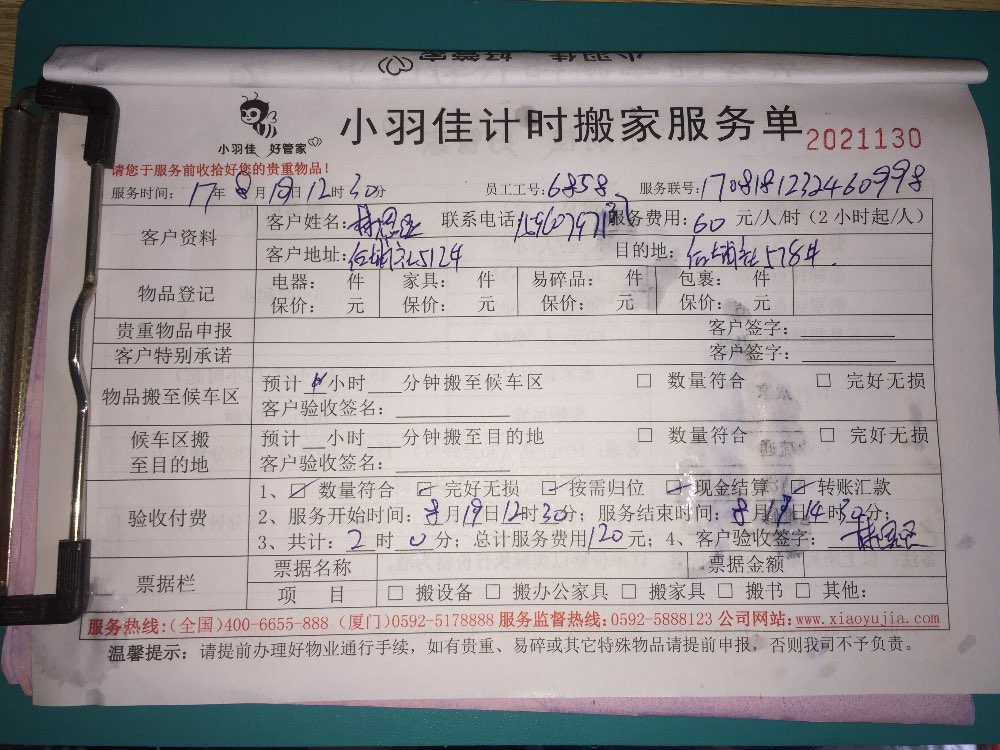 小羽佳 好管家
小羽佳计时搬家服务单
2021130
请您于服务前收拾好您的贵重物品！
服务时间：17年8月19日12时30分 员工工号：6858 服务联号：170818123246 0998
客户资料
客户姓名： 联系电话 服务费用：60元/人/时（2小时起/人）
客户地址： 目的地：
物品登记
电器： 件 家具： 件 易碎品： 件 包裹： 件
保价： 元 保价： 元 保价： 元 保价： 元
贵重物品申报 客户签字：
客户特别承诺 客户签字：
物品搬至候车区
预计 小时 分钟搬至候车区 □ 数量符合 □ 完好无损
客户验收签名：
候车区搬至目的地
预计 小时 分钟搬至目的地 □ 数量符合 □ 完好无损
客户验收签名：
验收付费
1、☑ 数量符合 ☑ 完好无损 ☑ 按需归位 ☑ 现金结算 ☑ 转账汇款
2、服务开始时间：8月19日12时30分；服务结束时间：8月19日14时30分；
3、共计：2时0分；总计服务费用120元；4、客户验收签字：
票据栏
票据名称 票据金额
项 目 □ 搬设备 □ 搬办公家具 □ 搬家具 □ 搬书 □ 其他：
服务热线：(全国)400-6655-888 (厦门)0592-5178888 服务监督热线：0592-5888123 公司网站：www.xiaoyujia.com
温馨提示：请提前办理好物业通行手续，如有贵重、易碎或其它特殊物品请提前申报，否则我司不予负责。